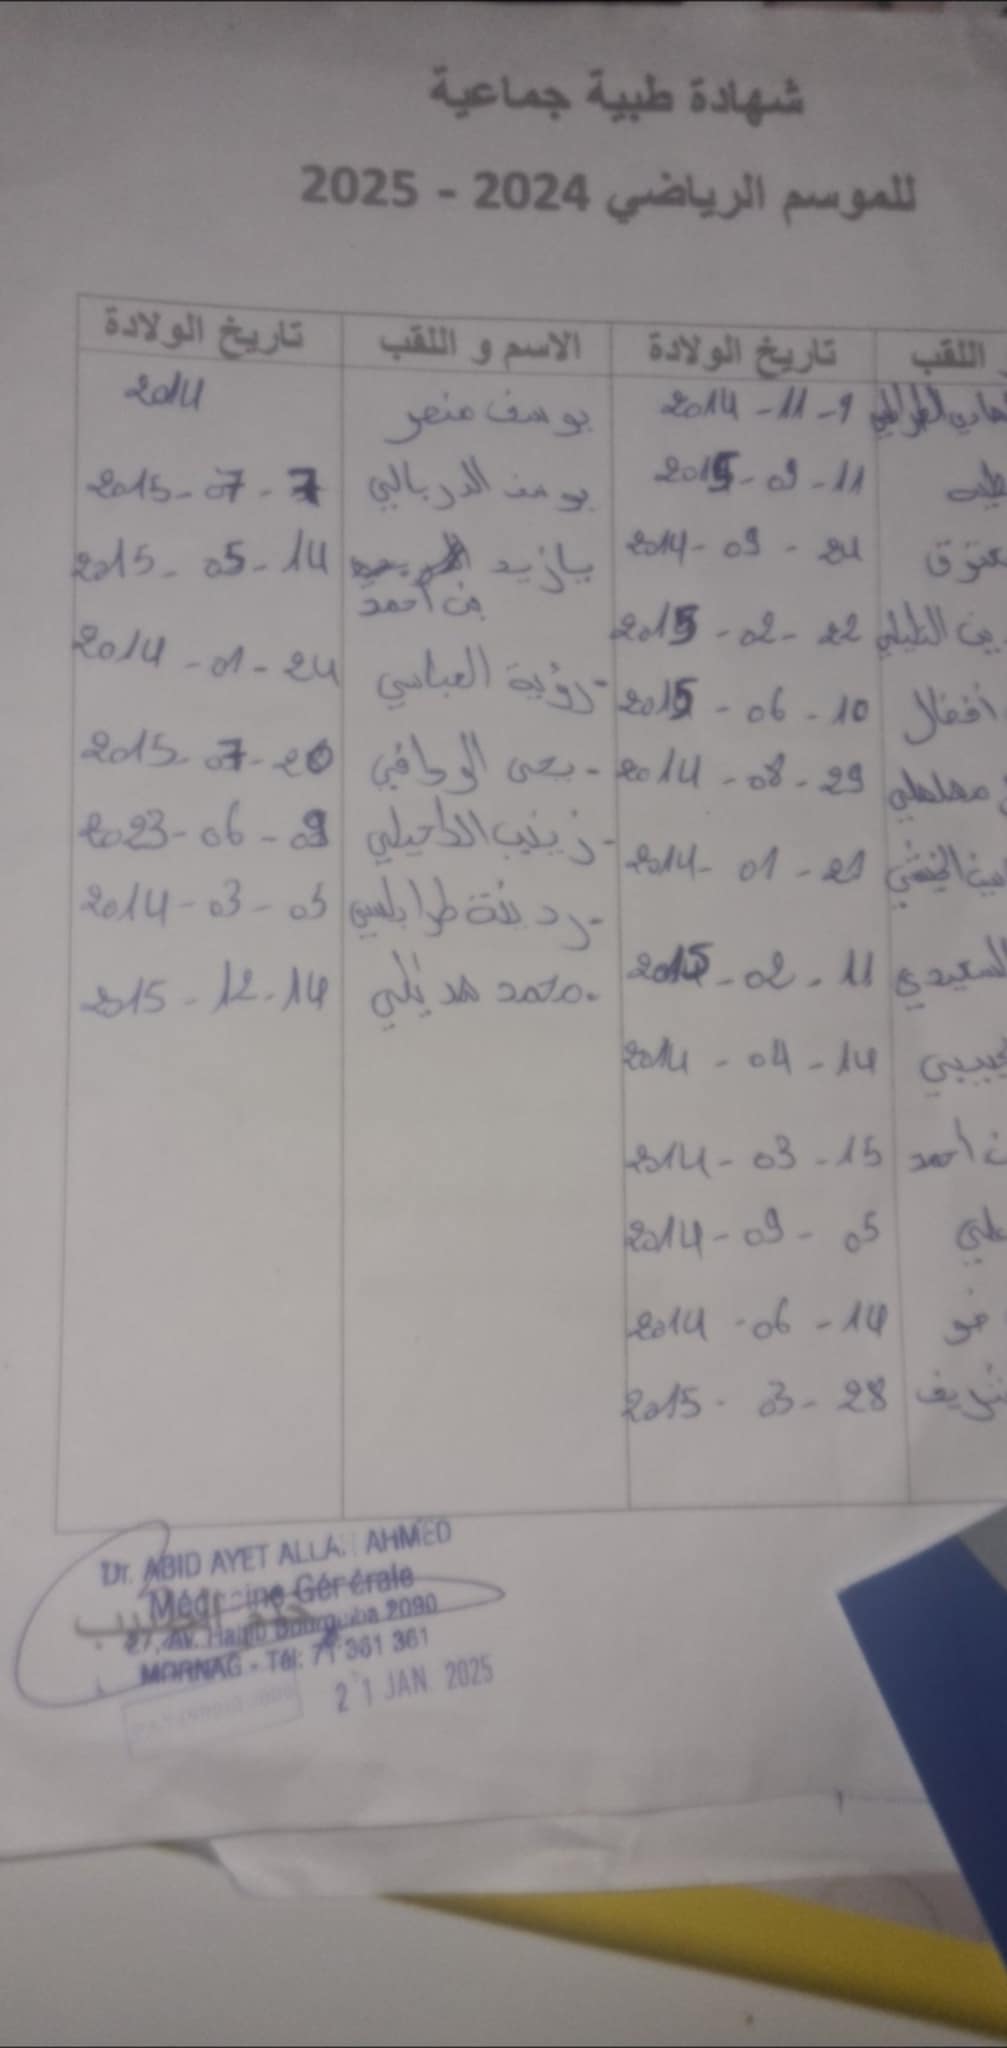 شهادة طبية جماعية
للموسم الرياضي 2024 - 2025
اللقب تاريخ الولادة الاسم و اللقب تاريخ الولادة
2014 - 11 - 9 يوسف منصر 2014
2015 - 09 - 11 يوسف الدربالي 2015 - 07 - 7
2014 - 09 - 21 يازيد بن أحمد 2015 - 05 - 14
2015 - 02 - 22 رؤية العباسي 2014 - 01 - 24
أفضال 2015 - 06 - 10 يحي الوحافي 2015 - 07 - 20
2014 - 08 - 29 زينب الكحيلي 2023 - 06 - 09
2014 - 01 - 21 طرابلسي 2014 - 03 - 05
السعيدي 2015 - 02 - 11 محمد هذيلي 2015 - 12 - 14
2014 - 04 - 14
أحمد 2014 - 03 - 15
2014 - 09 - 05
2014 - 06 - 14
2015 - 03 - 28
Dr. ABID AYET ALLAH AHMED
Médecine Générale
ختم الطبيب
27, Av. Habib Bourguiba 2090
MORNAG - Tél: 71 361 361
21 JAN. 2025